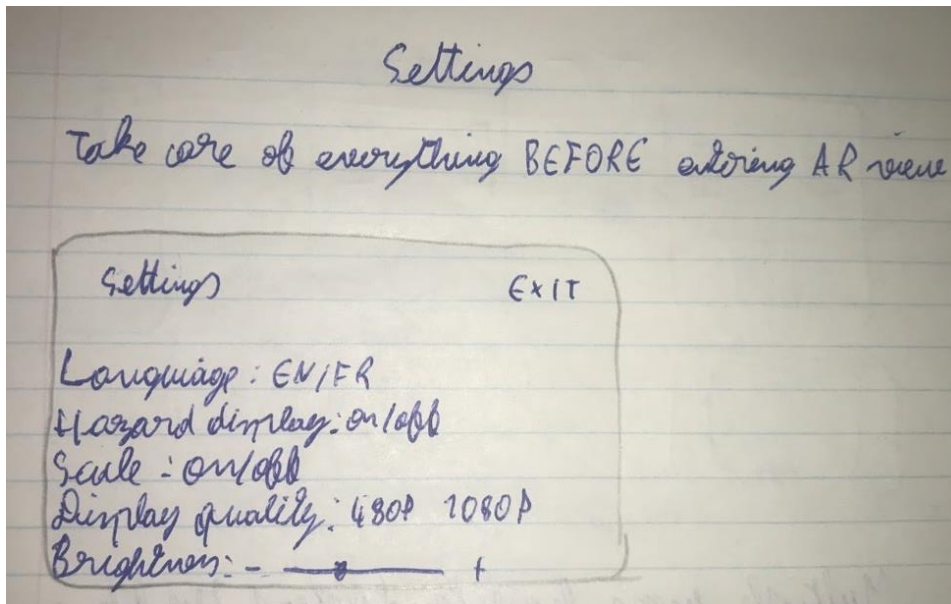 Settings
Take care of everything BEFORE entering AR view
Settings EXIT
Language: EN/FR
Hazard display: on/off
Scale: on/off
Display quality: 480P 1080P
Brightness: - +